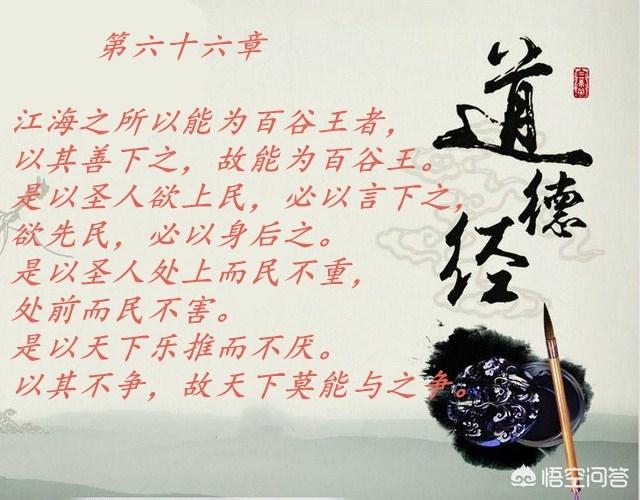 第六十六章
江海之所以能为百谷王者，
以其善下之，故能为百谷王。
是以圣人欲上民，必以言下之，
欲先民，必以身后之。
是以圣人处上而民不重，
处前而民不害。
是以天下乐推而不厌。
以其不争，故天下莫能与之争。
道德经
悟空问答